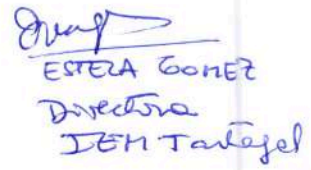 ESTELA GOMEZ
Directora
IEM Tartagal